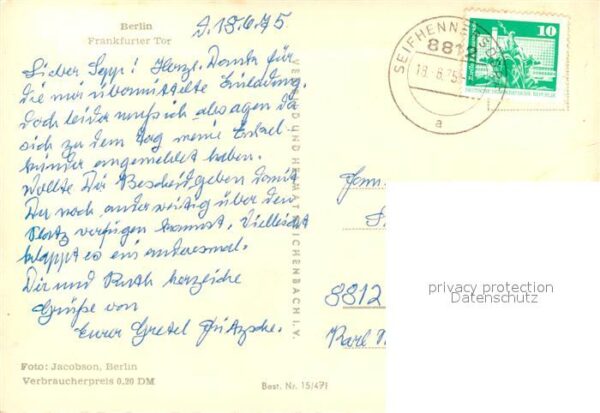 Berlin
Frankfurter Tor
18.6.75
Lieber Sepp! Herzl. Dank für
die mir übermittelte Einladung,
doch leider muß ich absagen da
sich zu dem Tag meine Enkel
kinder angemeldet haben.
Wollte Dir Bescheid geben damit
Du noch anderweitig über den
Platz verfügen kannst. Vielleicht
klappt es ein andersmal.
Dir und Ruth herzliche
Grüße von
Eurer Gretel
Foto: Jacobson, Berlin
Verbraucherpreis 0,20 DM
Best. Nr. 15/471
VERLAG BILD UND HEIMAT REICHENBACH I. V.
SEIFHENNERSDORF
8812
18.-6.75
a
10
DEUTSCHE DEMOKRATISCHE REPUBLIK
8812
Karl
privacy protection
Datenschutz